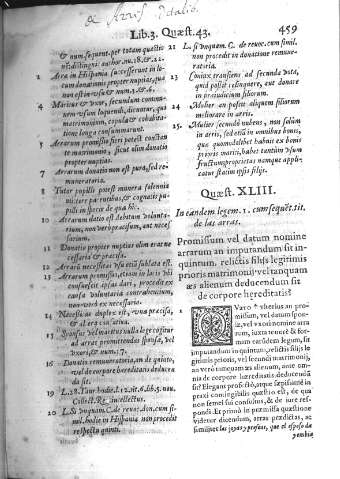 & Arris
Lib. 3. Quæst. 43. 459
& num. sequent. per totam quæstio
nis distingui author. nu. 18. & 22.
2 Arræ in Hispania successerunt in lo-
cum donationis propter nuptias, quæ
non est in usu & num. 3. & 6.
4 Maritus & uxor, secundum commu-
nem usum loquendi, dicuntur, qui
matrimonium, copula & cohabita-
tione longa consummarunt.
5 Arrarum promissio fieri potest constan
te matrimonio, sicut olim donatio
propter nuptias.
7 Arrarum donatio non est pura, sed re-
muneratoria.
8 Tutor pupilli potest munera solennia
mittere parentibus, & cognatis pu-
pilli in specie de qua hîc.
10 Arrarum datio est debitum volunta-
rium, non verò præcisum, aut neces-
sarium.
11 Donatio propter nuptias olim erat ne
cessaria & precisa.
12 Arrarum necessitas usu est sublata est.
13 Arrarum promissio, etiam in locis ubi
consuescit ipsas dari, procedit ex
causa voluntaria contrahentium,
non verò ex necessaria.
14 Necesse duplex est, una precisa,
& altera causativa.
15 Sponsus vel maritus nulla lege cogitur
ad arras promittendas sponsæ, vel
uxori, & num. 17.
16 Donatio remuneratoria, an de quinto,
vel de corpore hereditario deducen
da sit.
19 L. 28. Taur. hodie l. 12. tit. 6. lib. 5. nou.
Collect. Re. intellectus.
20 L. Si unquam C. de reuoc. don. cum si-
mil. hodie in Hispania non procedit
respectu quinti.
21 L. si unquam. C. de reuoc. cum simil.
non procedit in donatione remune-
ratoria.
23 Coniux transiens ad secunda vota,
quid possit relinquere, aut donare
in præiudicium filiorum.
24 Mulier an possit aliquem filiorum
meliorare in arris.
25 Mulier secundo nubens, non solùm
in arris, sed etiã in omnibus bonis,
quæ quomodolibet habuit ex bonis
prioris mariti, habet tantùm usum
fructum proprietas namque appli-
catur statim ipsis filijs.
Quæst. XLIII.
In eandem legem. 1. cum sequẽt. tit.
de las arras.
Promissum vel datum nomine
arrarum an imputandum sit in
quintum, relictis filijs legitimis
prioris matrimonij vel tanquam
æs alienum deducendum sit
de corpore hereditatis?
1 Quæro ulteriùs an pro-
missum, vel datum spon-
sæ, vel uxori nomine arra
rum, iuxta tenorē & for-
mam earūdem legum, sit
imputandum in quintum, relictis filijs le-
gitimis prioris, vel secundi matrimonij,
an verò tanquam æs alienum, ante om-
nia de corpore hæreditatis deducendũ
sit? Elegans profectò, atque sæpissimè in
praxi contingibilis quæstio est, de qua
non semel fui consultus, & de iure respõ-
di. Et primò in præmissa quæstione
videtur dicendum, arras prædictas, ac
similiter las joyas y presas, que el esposo da
pambia